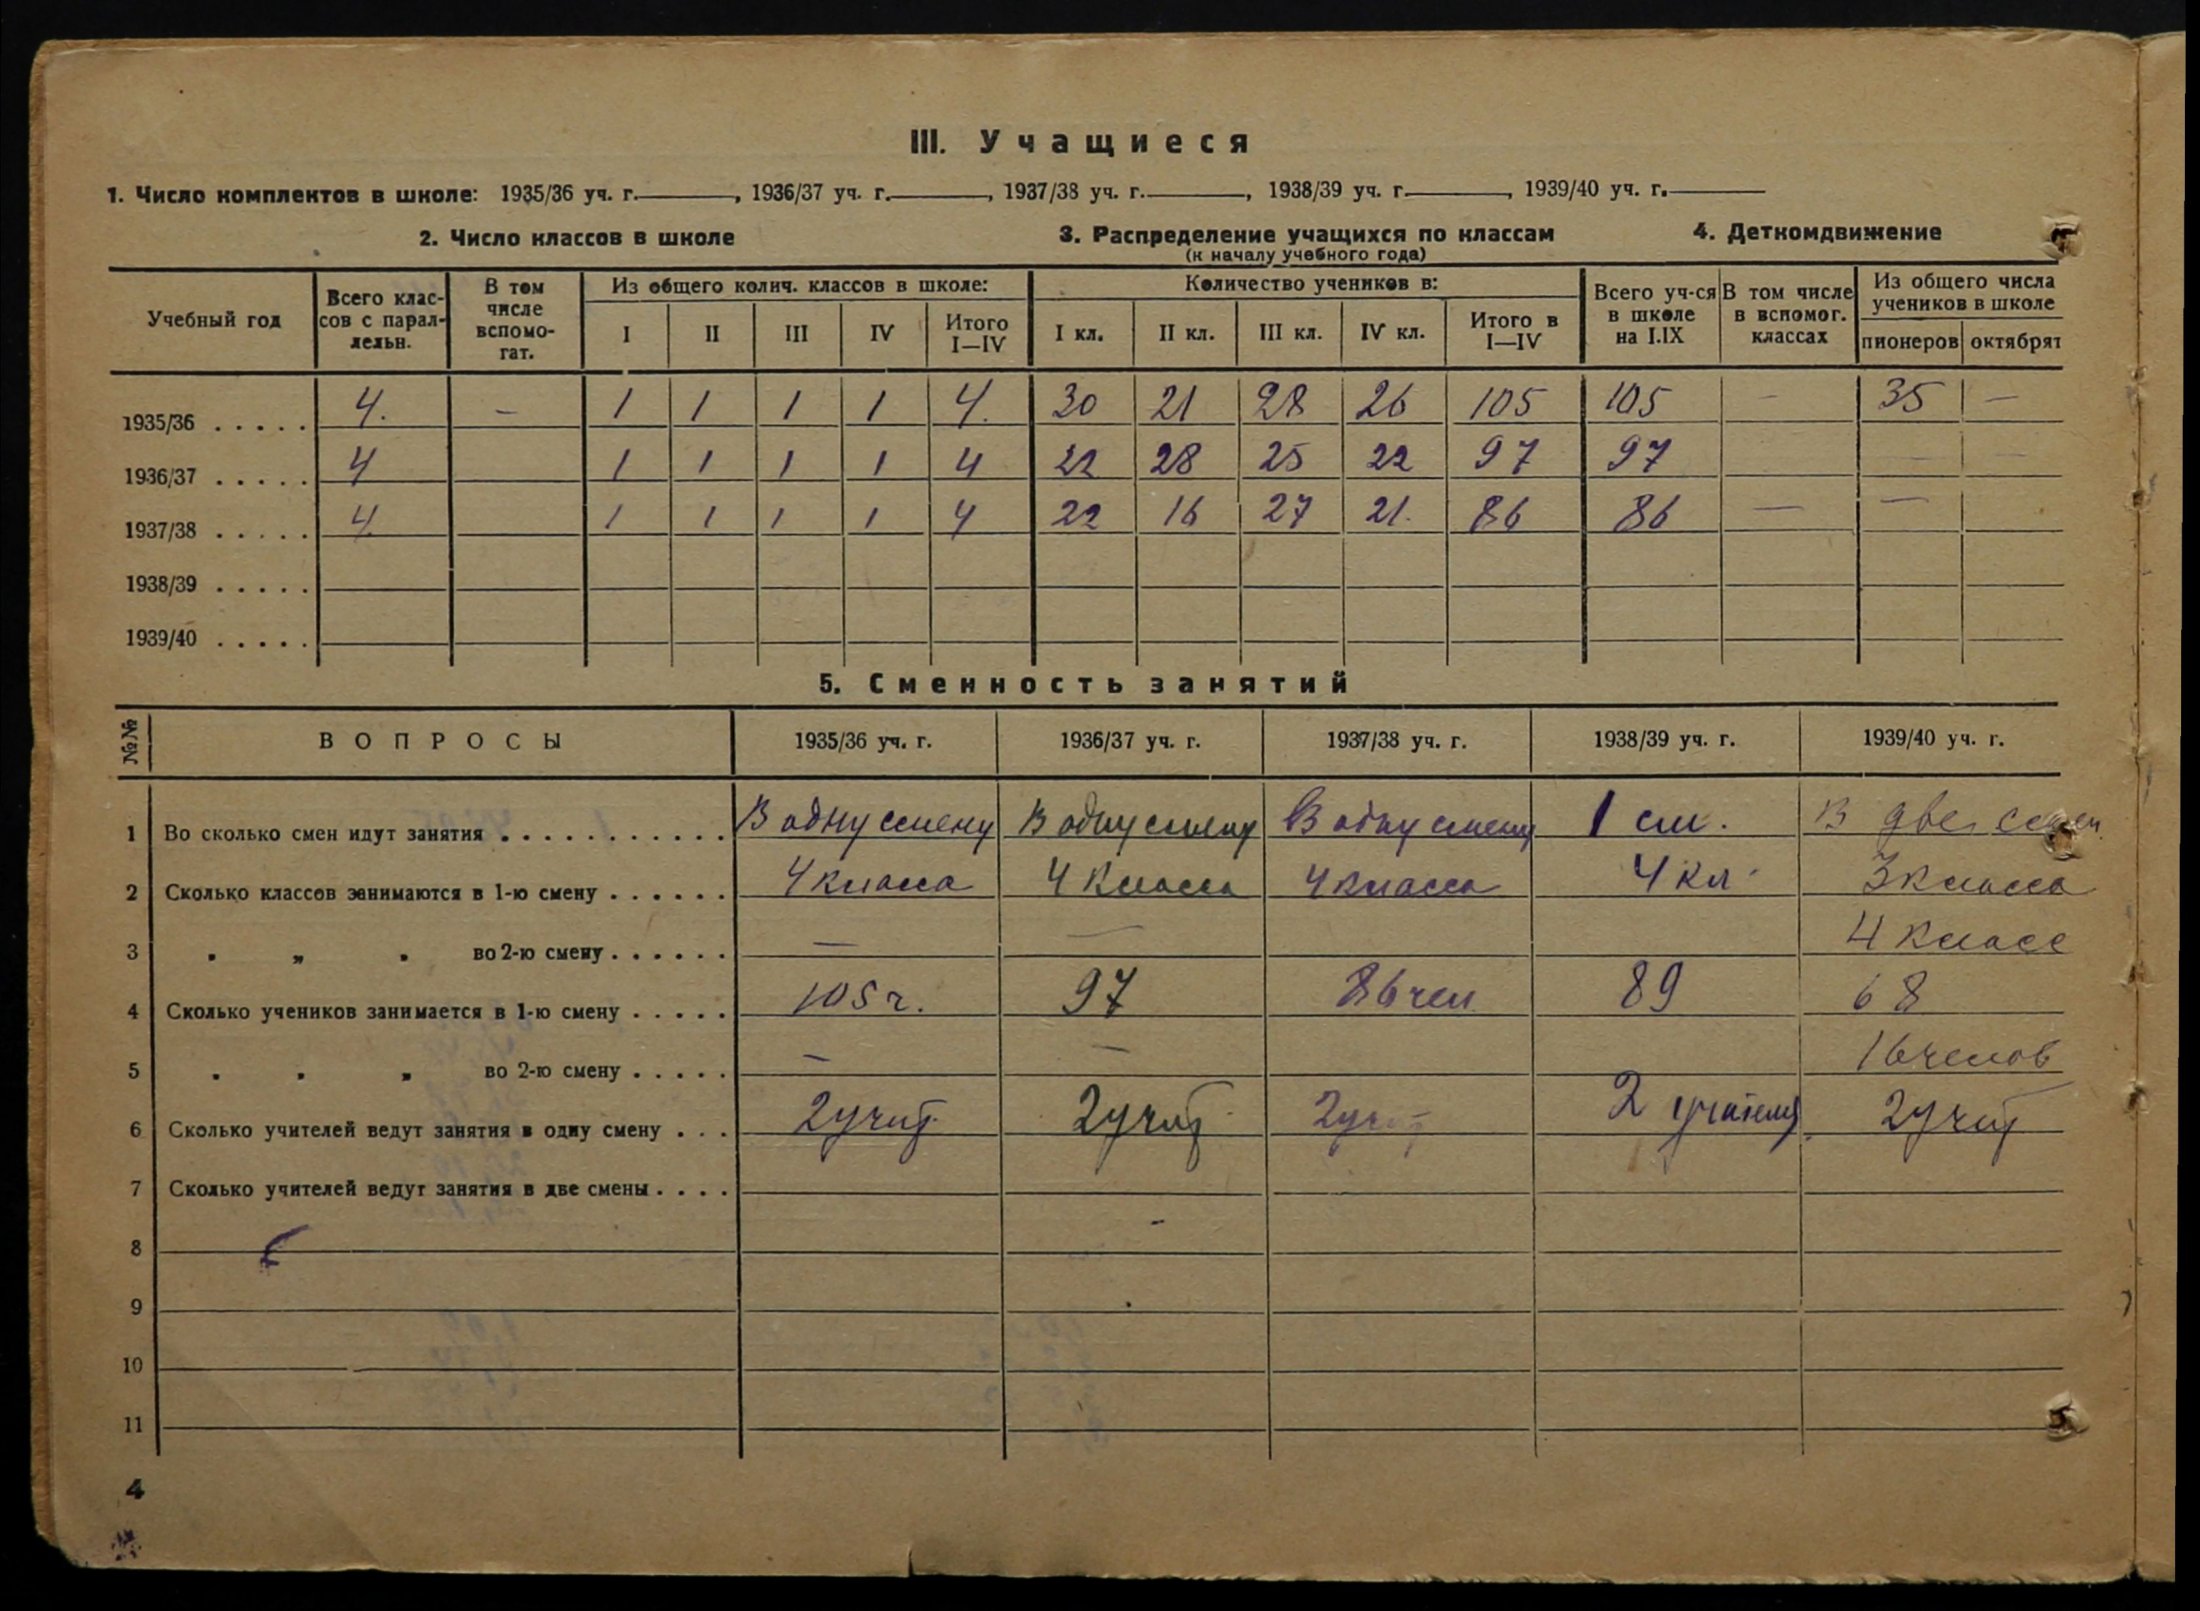 III. Учащиеся
1. Число комплектов в школе: 1935/36 уч. г.____, 1936/37 уч. г.____, 1937/38 уч. г.____, 1938/39 уч. г.____, 1939/40 уч. г.____
2. Число классов в школе 3. Распределение учащихся по классам 4. Деткомдвижение
(к началу учебного года)
Учебный год Всего классов с параллельн. В том числе вспомогат. Из общего колич. классов в школе: Количество учеников в: Всего уч-ся в школе на I.IX В том числе в вспомог. классах Из общего числа учеников в школе
I II III IV Итого I—IV I кл. II кл. III кл. IV кл. Итого в I—IV пионеров октябрят
1935/36 . . . . . 4. — 1 1 1 1 4. 30 21 28 26 105 105 — 35 —
1936/37 . . . . . 4 1 1 1 1 4 22 28 25 22 97 97 — —
1937/38 . . . . . 4. 1 1 1 1 4 22 16 27 21. 86 86 — —
1938/39 . . . . .
1939/40 . . . . .
5. Сменность занятий
№№ ВОПРОСЫ 1935/36 уч. г. 1936/37 уч. г. 1937/38 уч. г. 1938/39 уч. г. 1939/40 уч. г.
1 Во сколько смен идут занятия . . . . . . . . . . . В одну смену В одну смену В одну смену 1 см. В две
2 Сколько классов занимаются в 1-ю смену . . . . . . 4 класса 4 класса 4 класса 4 кл. 3 класса
3 " " " во 2-ю смену . . . . . . — — 4 класс
4 Сколько учеников занимается в 1-ю смену . . . . . 105 ч. 97 86 чел 89 68
5 " " " во 2-ю смену . . . . . — — 16 челов
6 Сколько учителей ведут занятия в одну смену . . . 2 учит. 2 учит. 2 учит 2 учителя 2 учит
7 Сколько учителей ведут занятия в две смены . . . .
8
9
10
11
4